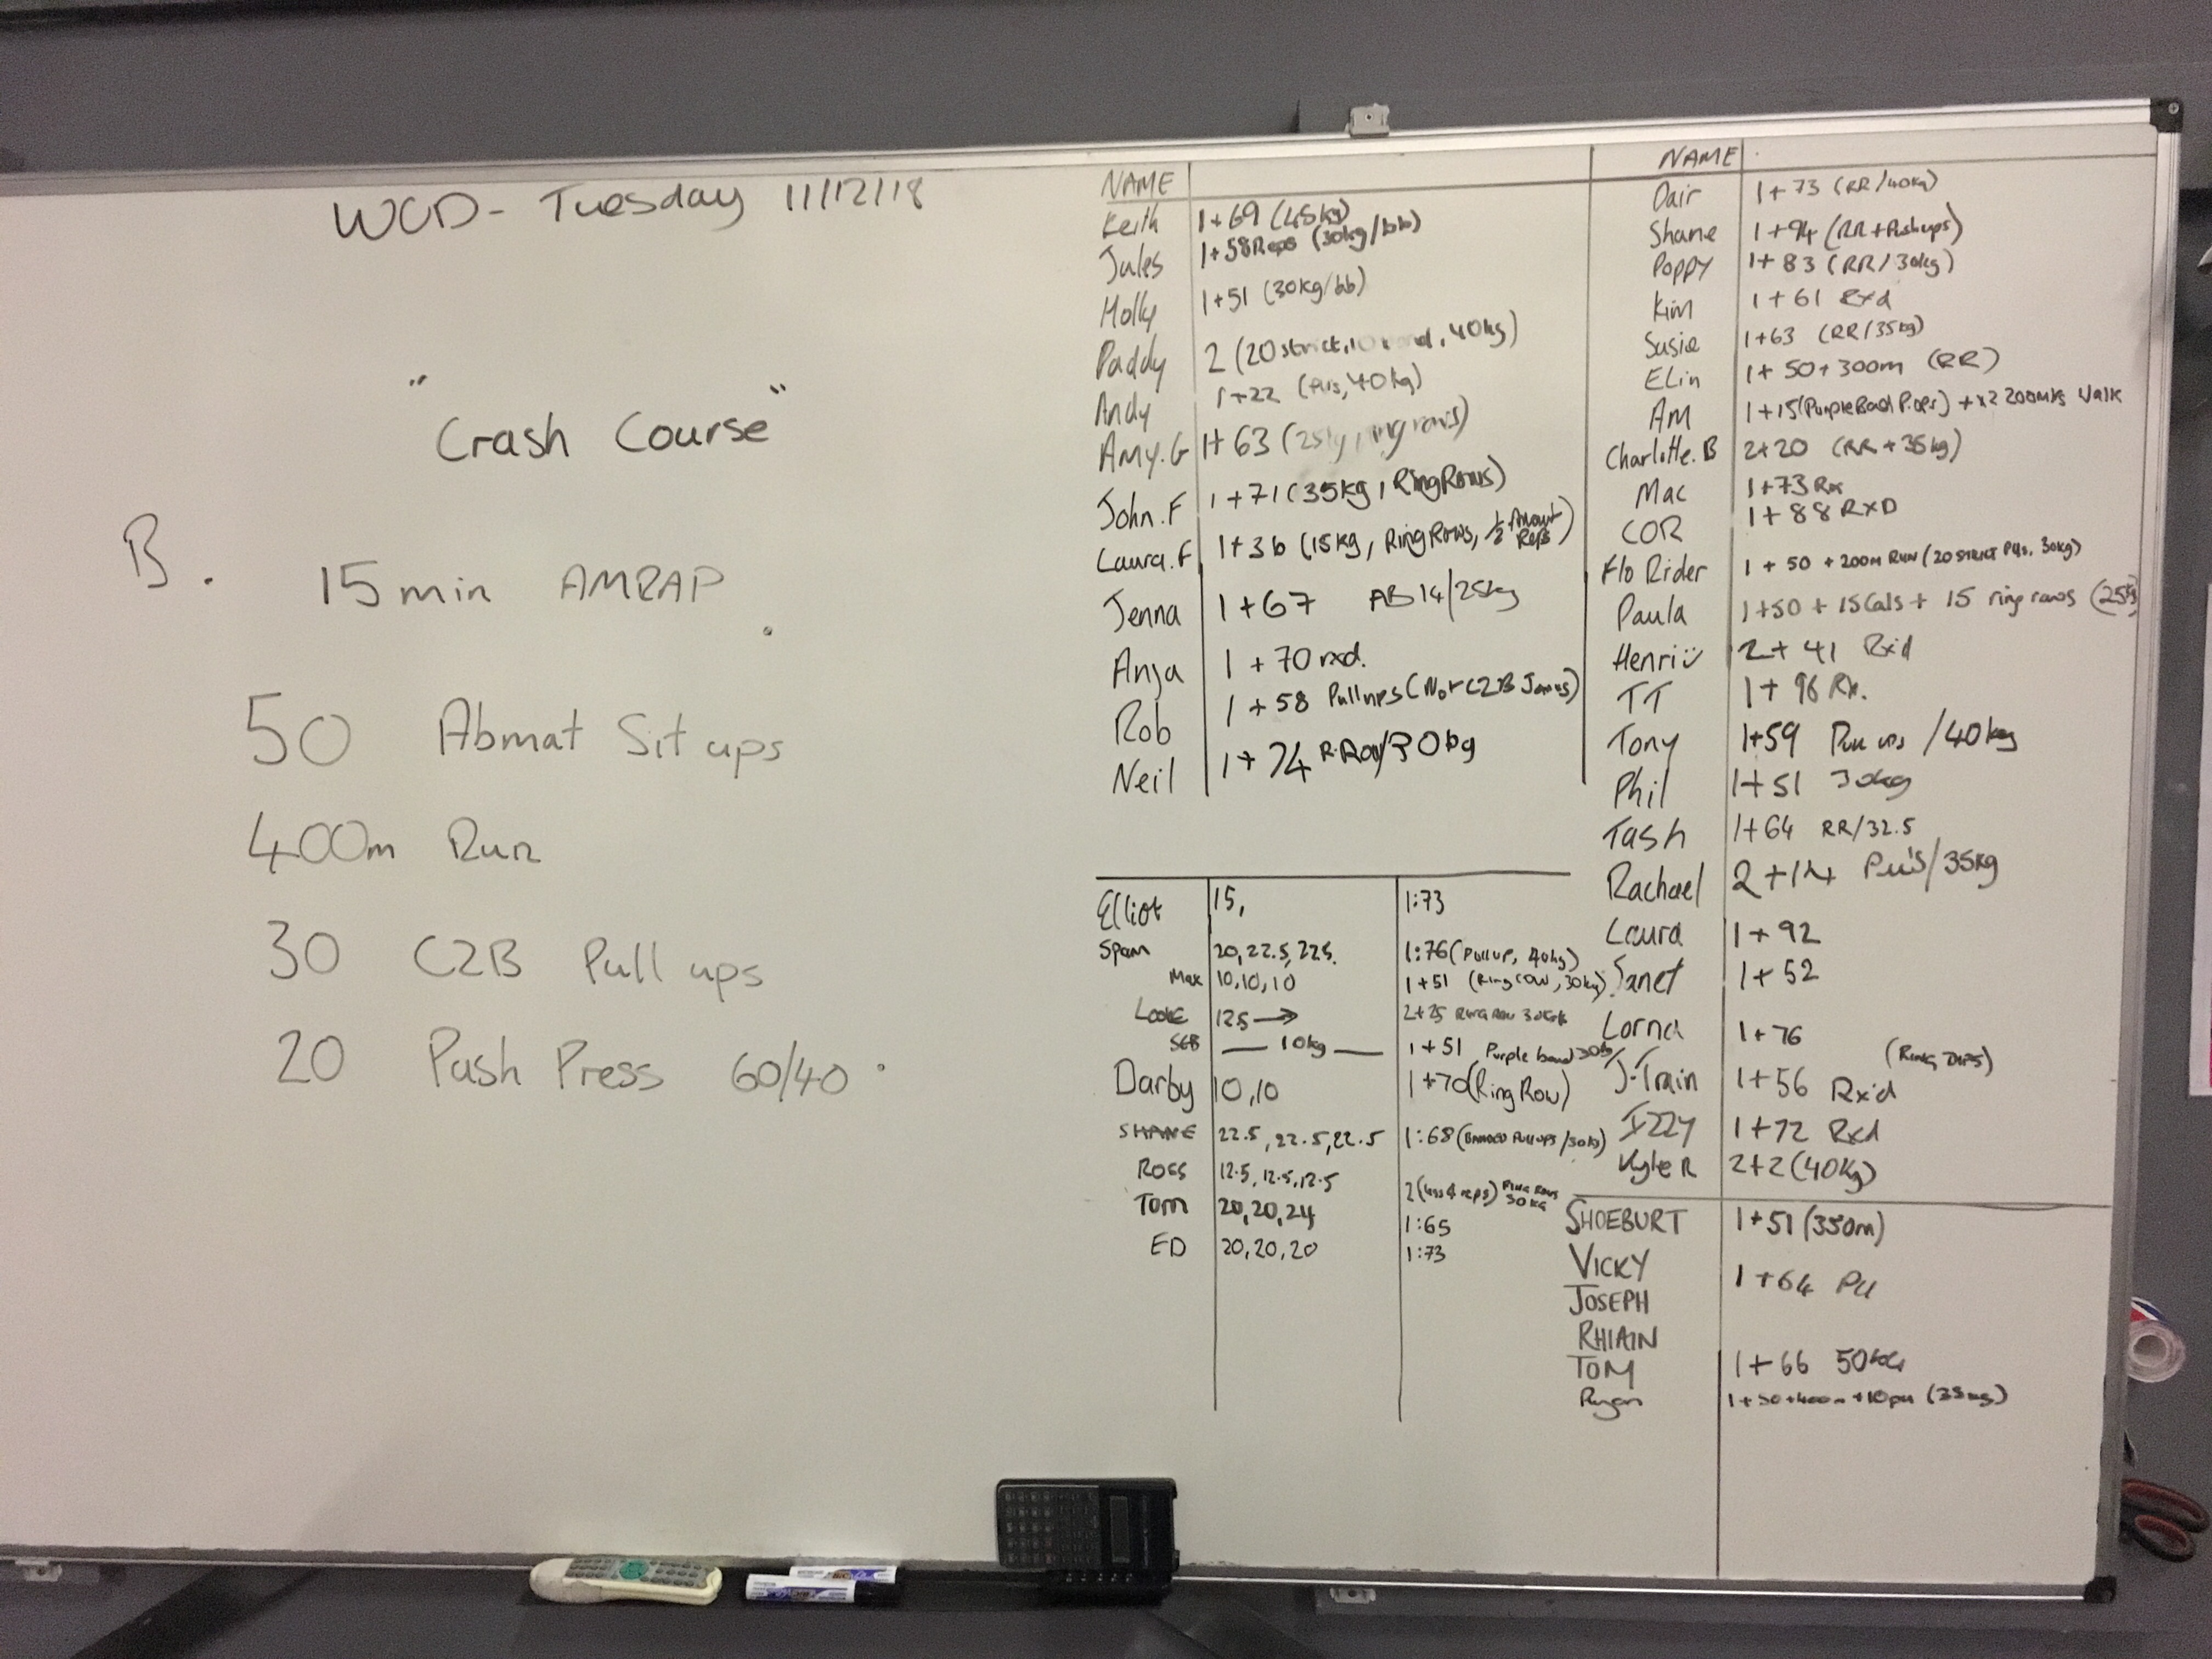 WOD - Tuesday 11/12/18
"Crash Course"
B.
15 min AMRAP
50 Abmat Sit ups
400m Run
30 C2B Pull ups
20 Push Press 60/40
NAME
Keith 1+69 (45kg)
Jules 1+58 Reps (30kg/bb)
Holly 1+51 (30kg/bb)
Paddy 2 (20 strict, 40kg)
Andy 1+22 (PUs, 40kg)
Amy.G 1+63 (ring rows)
John.F 1+71 (35kg, Ring Rows)
Laura.F 1+36 (15kg, Ring Rows, 1/2 Amount Reps)
Jenna 1+67 AB14/25kg
Anja 1+70 rxd.
Rob 1+58 Pullups (Not C2B)
Neil 1+74 R.Row/30kg
Elliot 15, 1:73
Spam 20, 22.5, 22.5. 1:76 (Pullup, 40kg)
Max 10, 10, 10 1+51 (Ring row, 30kg)
12.5 → 2+25 Ring Row
SEB — 10kg — 1+51 Purple band
Darby 10, 10 1+70 (Ring Row)
SHANE 22.5, 22.5, 22.5 1:68 (Banded Pullups/30kg)
Ross 12.5, 12.5, 12.5 2 (less 4 reps) Ring Rows 30KG
Tom 20, 20, 24 1:65
ED 20, 20, 20 1:73
NAME
Dair 1+73 (RR/40kg)
Shane 1+94 (RR+Pushups)
Poppy 1+83 (RR/30kg)
Kim 1+61 Rxd
Susie 1+63 (RR/35kg)
Elin 1+50+300m (RR)
AM 1+15 (Purple Band P.ups) +x2 200mtrs Walk
Charlotte.B 2+20 (RR+35kg)
Mac 1+73 Rx
COR 1+88 RXD
Flo Rider 1+50+200m RUN (20 STRICT PUs, 30kg)
Paula 1+50+15Cals+15 ring rows (25kg)
Henri 2+41 Rx'd
TT 1+96 Rx.
Tony 1+59 Pull ups /40kg
Phil 1+51 30kg
Tash 1+64 RR/32.5
Rachael 2+14 Pu's/35kg
Laura 1+92
Janet 1+52
Lorna 1+76
J-Train 1+56 Rx'd (RING DIPS)
Izzy 1+72 Rxd
Kyle R 2+2 (40kg)
SHOEBURT 1+51 (350m)
VICKY 1+64 PU
JOSEPH
RHIAIN
TOM 1+66 50KG
Ryan 1+50+400m+10pu (35kg)